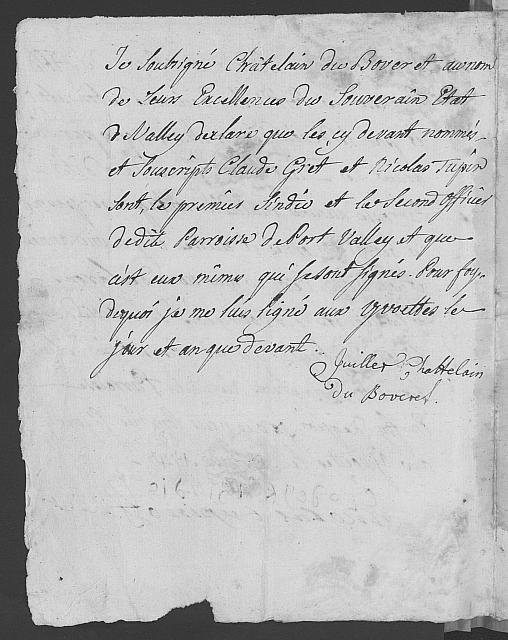 Je Soubsigné Châtelain du Boveret au nom
de Leurs Excellences du Souverain Etat
de Valley declare que les cy devant nommés
et Souscripts Claude Gret et Nicolas Tupin
sont, le premier Sindic et le Second Officier
de dite Parroisse de Port Valley et que
c'ést eux mêmes qui se sont signés. Pour foy
de quoi je me suis signé aux Evoettes le
jour et an que devant.
Chattelain
Du Boveret.